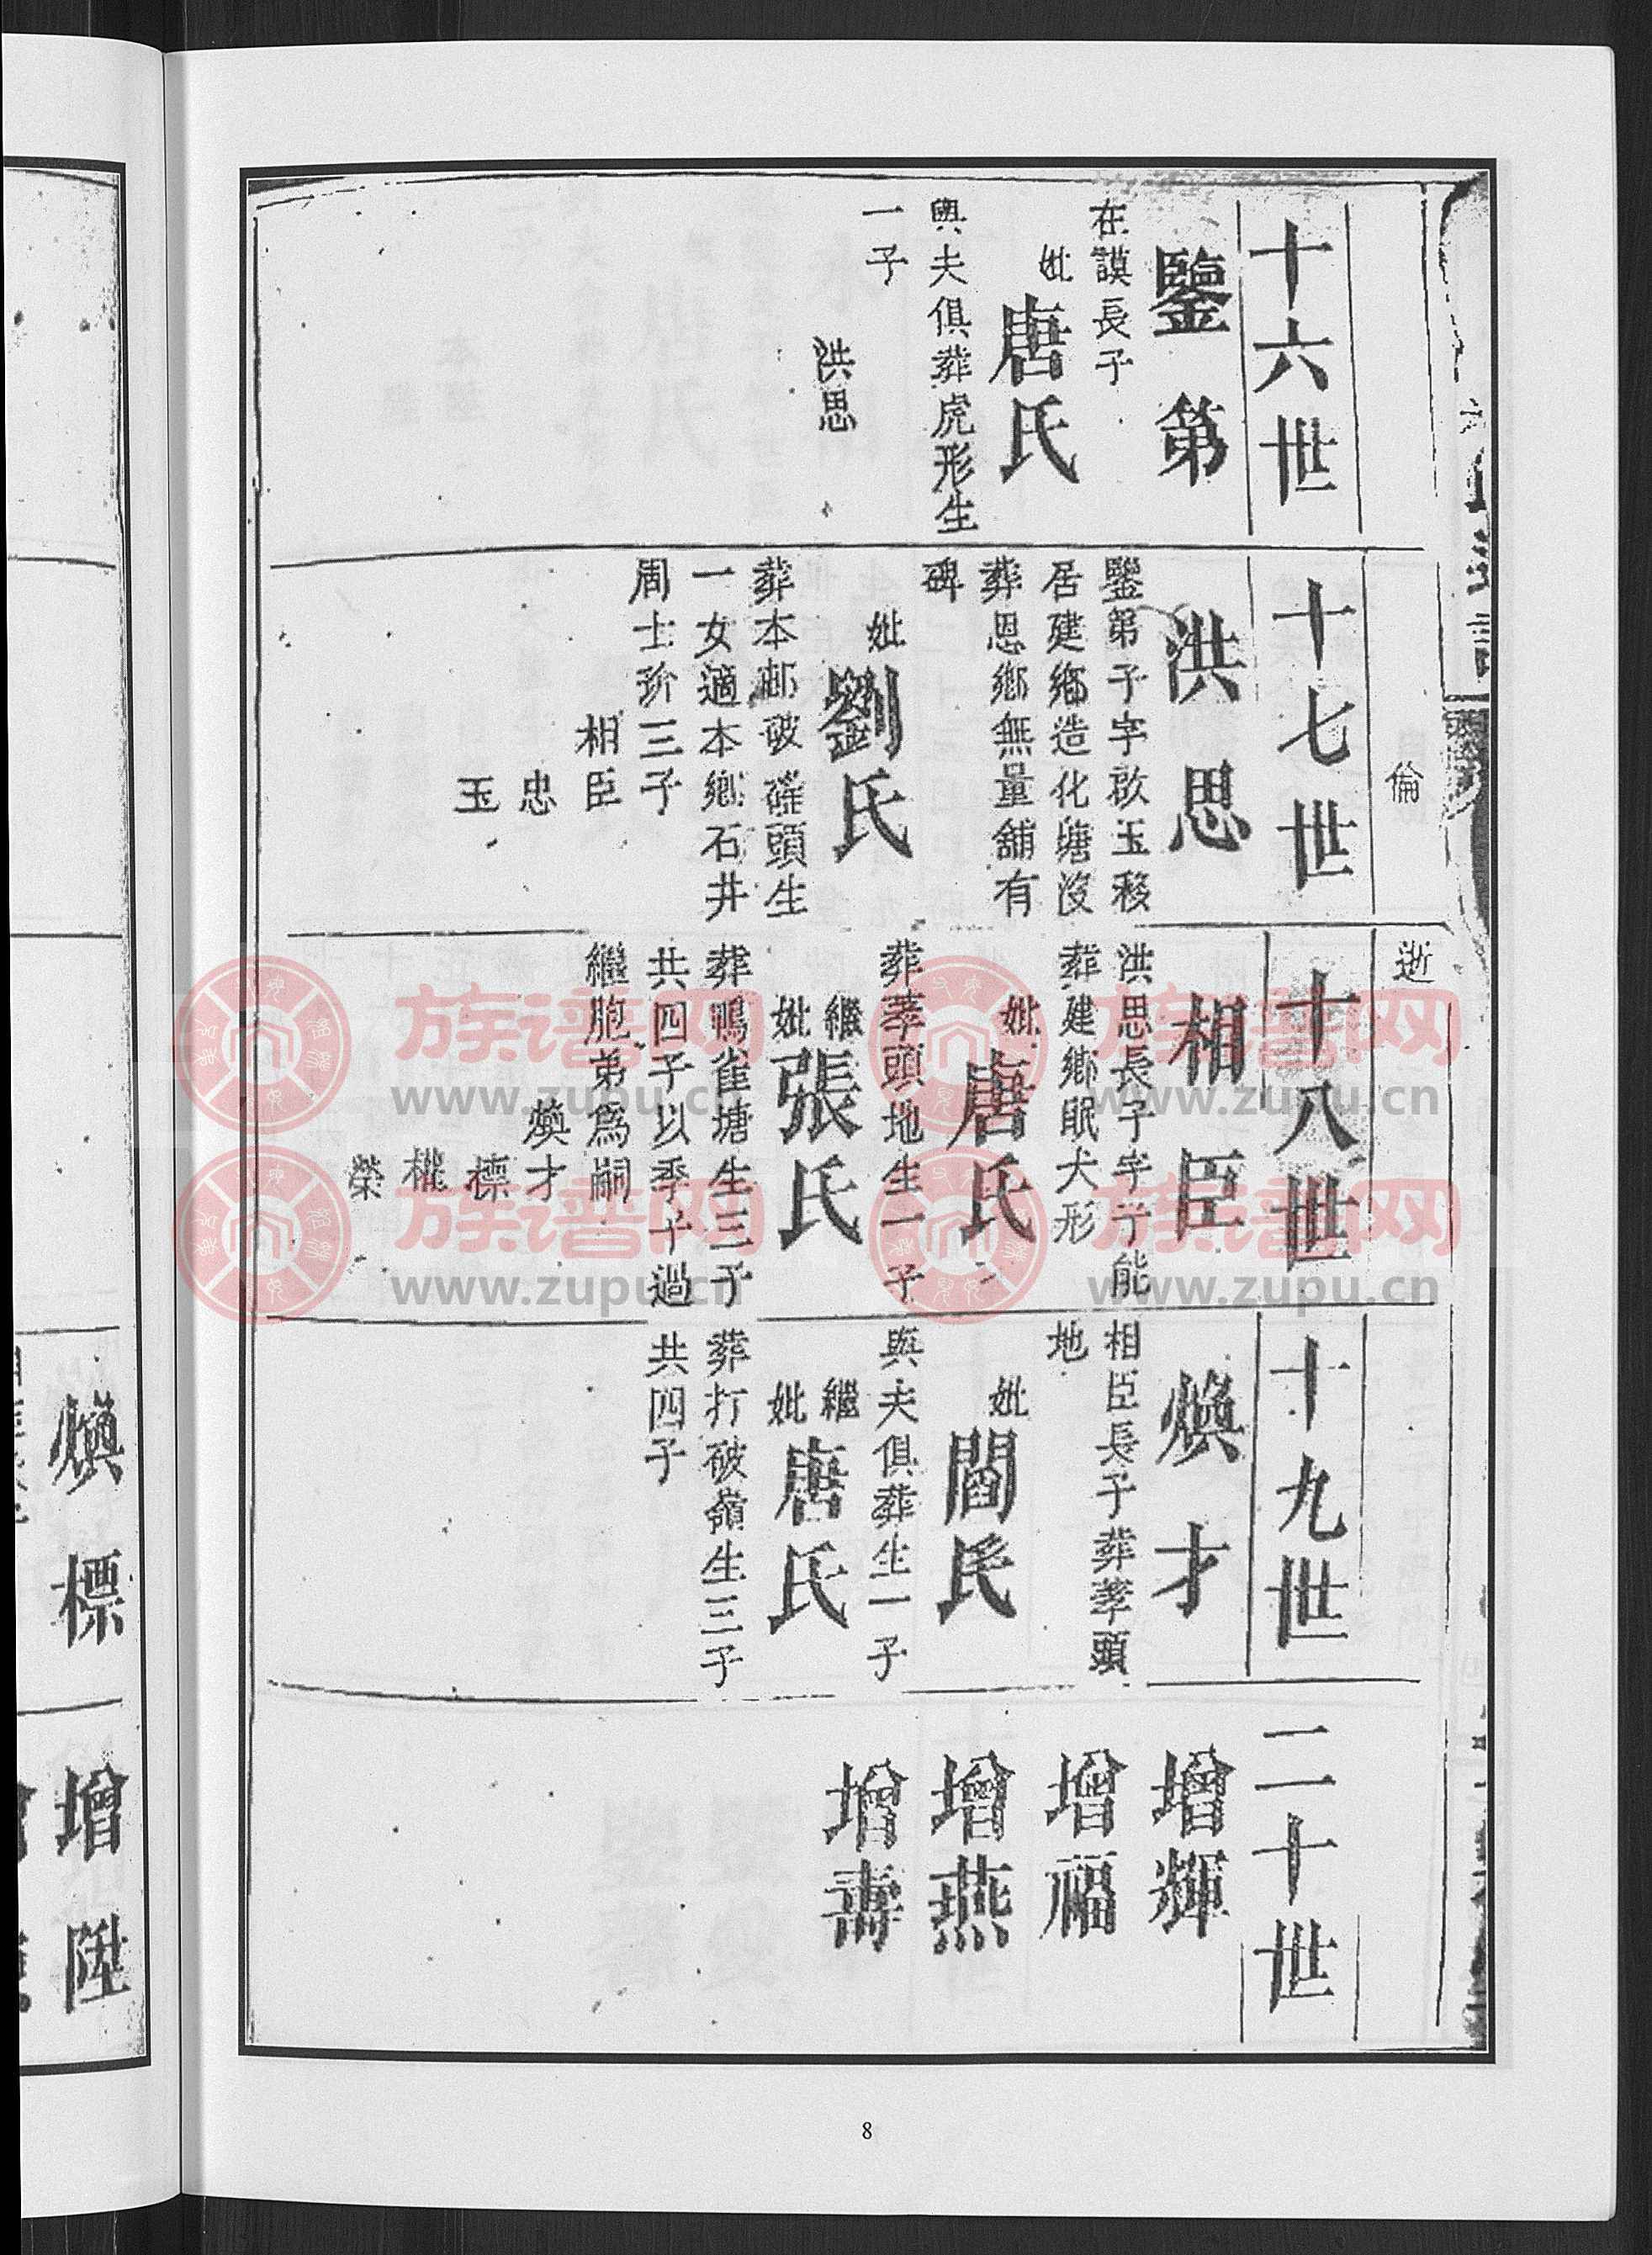 倫
逝
十六世
鑒第
在謨長子
妣
唐氏
與夫俱葬虎形生
一子
洪思
十七世
洪思
鑒第子字啟玉移
居建鄉造化塘沒
葬恩鄉無量舖有
碑
妣
劉氏
葬本邨破礶頭生
一女適本鄉石井
周士玠三子
相臣
忠
玉
十八世
相臣
洪思長子字亍能
葬建鄉眠犬形
妣
唐氏
葬莩頭地生一子
繼
妣
張氏
葬鴨雀塘生三子
共四子以季子過
繼胞弟爲嗣
煥才
標
權
榮
十九世
煥才
相臣長子葬莩頭
地
妣
閻氏
與夫俱葬生一子
繼
妣
唐氏
葬打破嶺生三子
共四子
二十世
增輝
增福
增燕
增壽
煥標
增陞
8
族谱网
www.zupu.cn
族谱网
www.zupu.cn
族谱网
www.zupu.cn
族谱网
www.zupu.cn